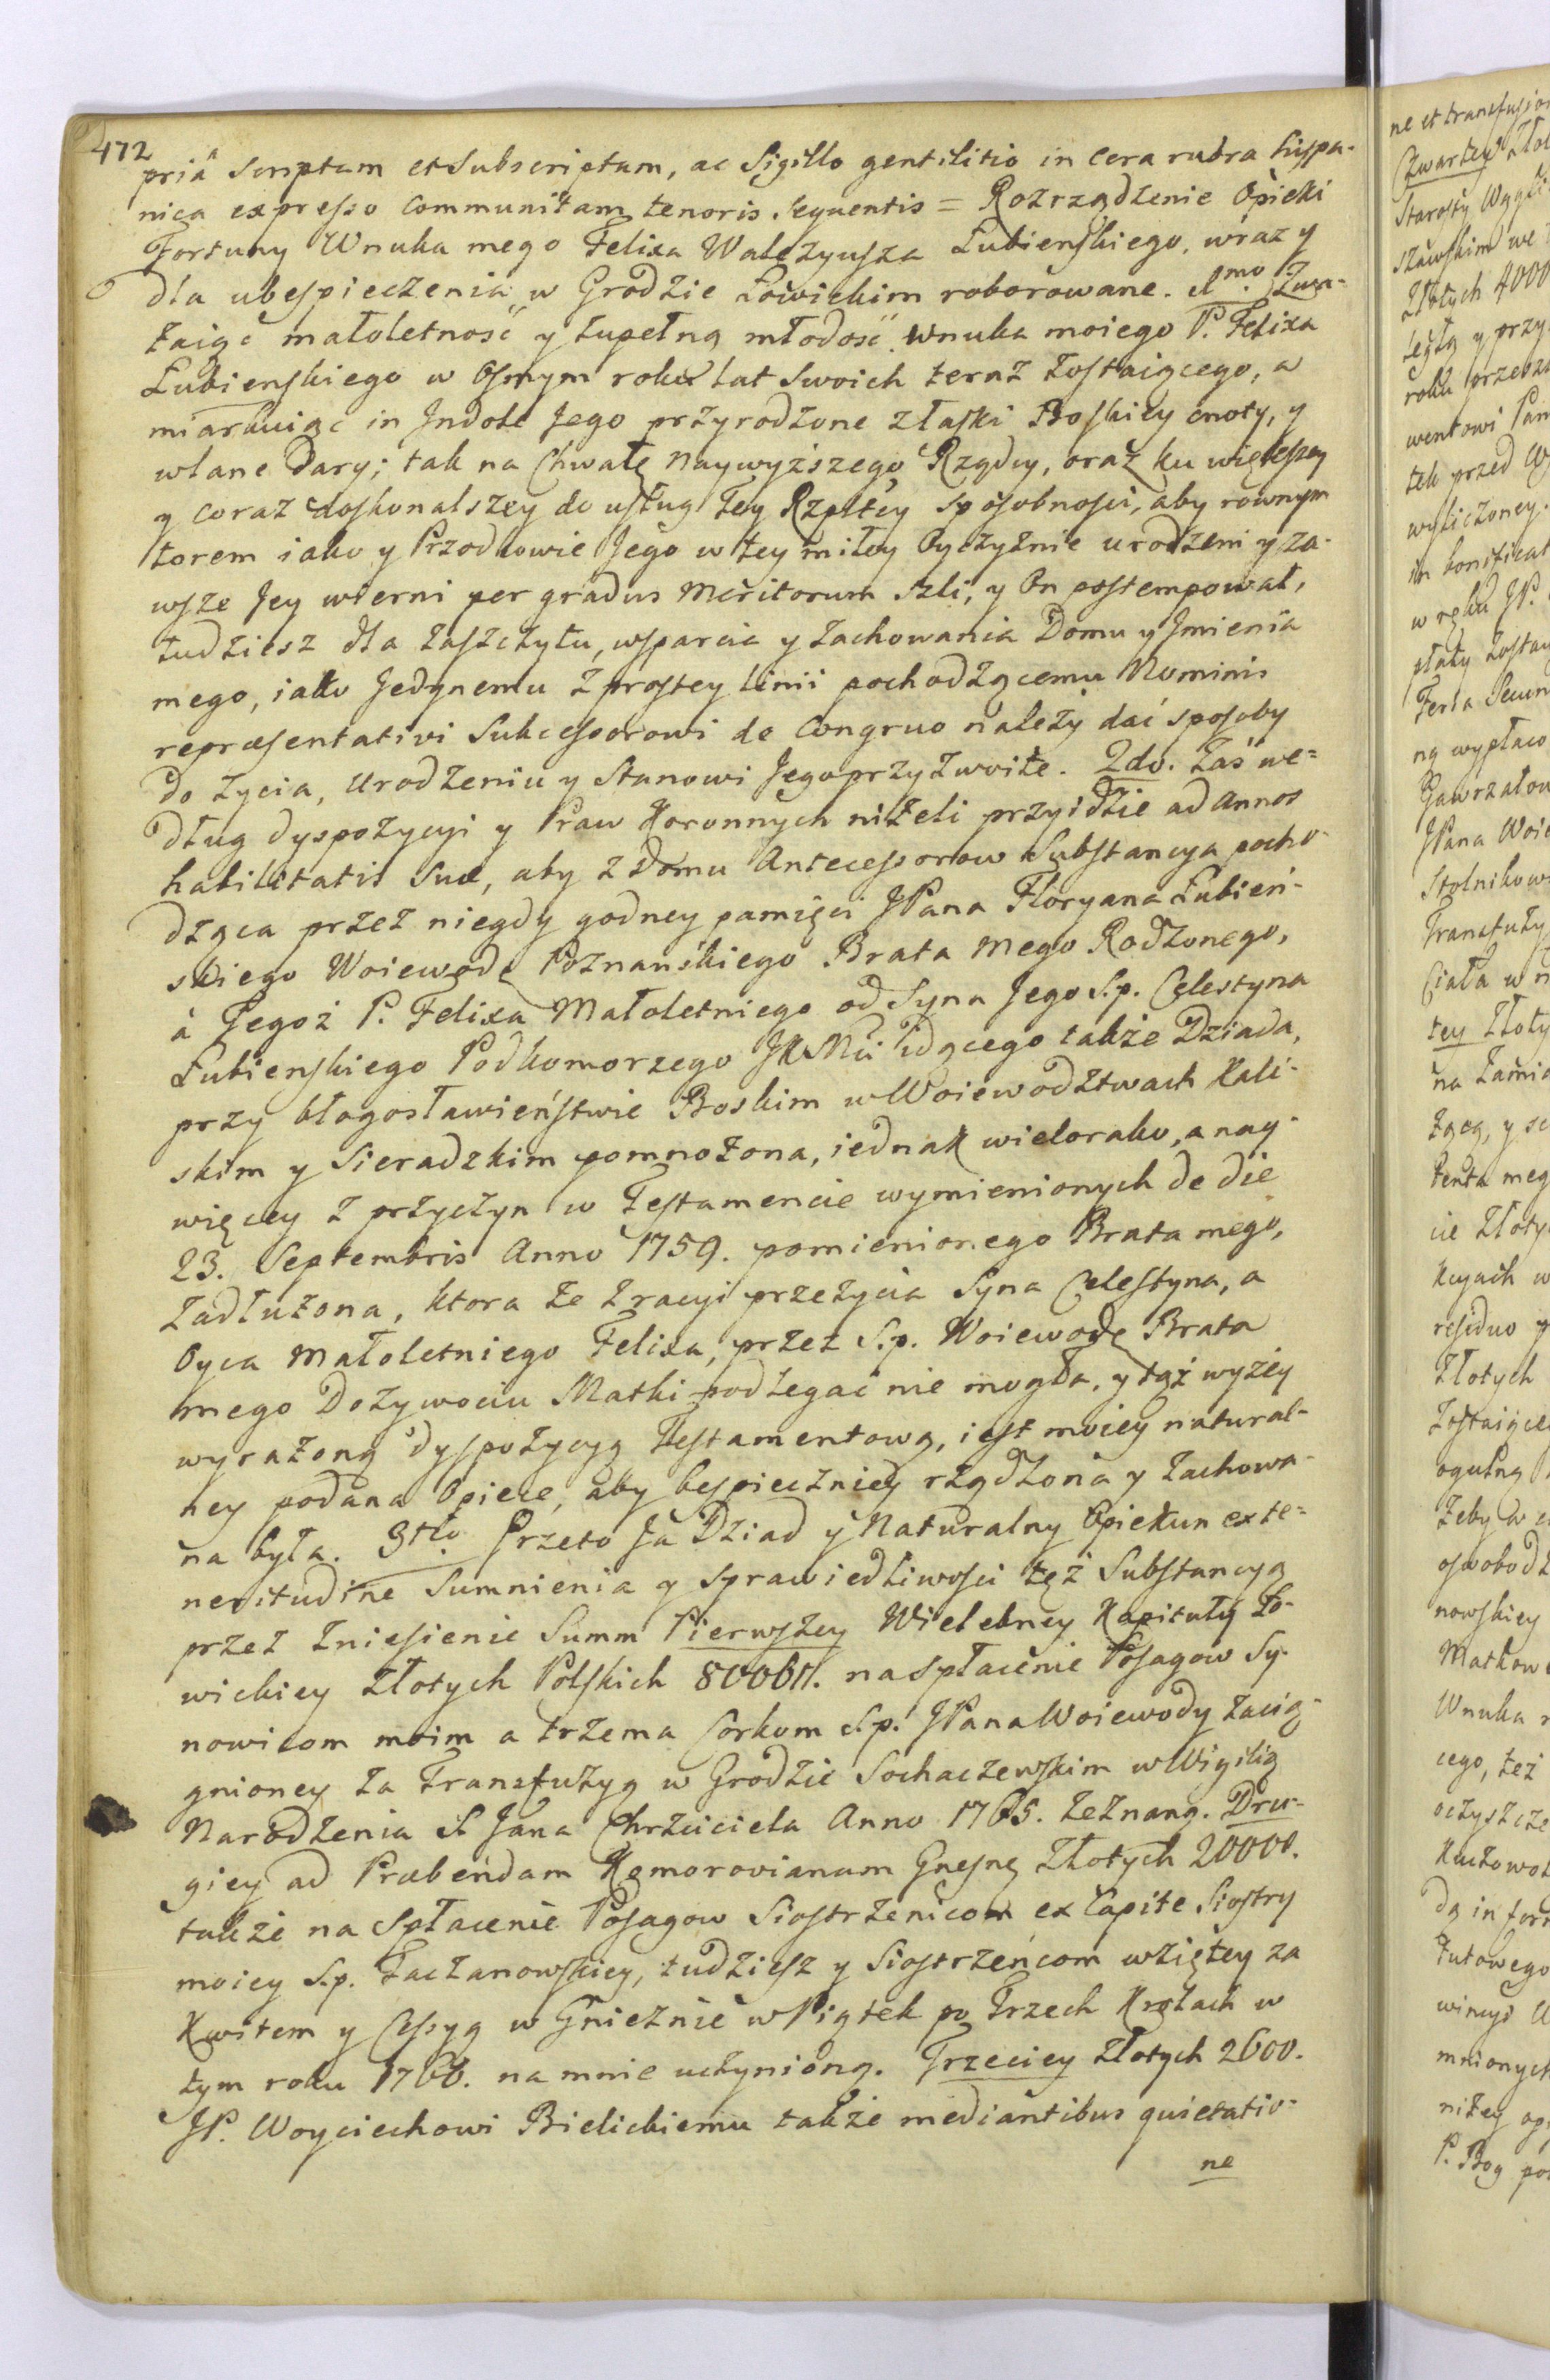 472
priâ Scriptam et Subscriptam, ac Sigillo gentilitio in Cera rubra hispa-
nica expresso communitam tenoris sequentis = Rozrządzenie Opieki
Fortuny Wnuka mego Felixa Walezyusza Lubienskiego, wraz y
dla ubespieczenia w Grodzie Łowickim roborowane. 1mo. Zwa-
żaiąc małoletność y zupełną młodość wnuka moiego P. Felixa
Lubienskiego w osmym roku lat swoich teraz zostaiącego, a
miarkuiąc in Indole Jego przyrodzone z łaski Boskiey cnoty, y
wlane Dary; tak na Chwałę Naywyższego Rządcy, oraz ku większey
y coraz doskonalszey do usług tey Rzpltey sposobności, aby rownym
torem iako y Przodkowie Jego w tey miłey Oyczyznie urodzeni y za-
wsze Jey wierni per gradus Meritorum szli, y On postempował,
tudziesz dla zaszczytu, wsparcia y zachowania Domu y Imienia
mego, iako Jedynemu z prostey linii pochodzącemu Nominis
repræsentativi Sukcessorowi de Congruo należy dać sposoby
do życia, Urodzeniu y Stanowi Jego przyzwoite. 2do. Zaś we-
dług dyspozycyi y Praw Koronnych niżeli przyidzie ad Annos
habilitatis Suæ, aby z Domu Antecessorow Substancya pocho-
dząca przez niegdy godney pamięci JPana Floryana Łubień-
skiego Woiewodę Poznańskiego Brata mego Rodzonego,
à Tegoż P. Felixa Małoletniego od Syna Jego S.p. Celestyna
Lubienskiego Podkomorzego JKMci idącego także Dziada,
przy błogosławieństwie Boskim w Woiewodztwach Kali-
skim y Sieradzkim pomnożona, iednak wielorako, a nay-
więcey z przyczyn w Testamencie wymienionych de die
23. Septembris Anno 1759. pomienionego Brata mego,
zadłużona, ktora że z racyi przeżycia Syna Celestyna, a
Oyca Małoletniego Felixa, przez S.p. Woiewodę Brata
mego Dożywociu Matki podlegać nie mogła, y tąż wyżey
wyrażoną dyspozycyą Testamentową, iest moiey natural-
ney podana Opiece, aby bespieczniey rządzona y zachowa-
na była. 3tio. Przeto Ja Dziad y Naturalny Opiekun ex te-
neritudine Sumnienia y Sprawiedliwości też Substancyą
przez zniesienie Summ Pierwszey Wielebney Kapituły Ło-
wickiey Złotych Polskich 80000. na Spłacenie Posagow Sy-
nowicom moim a trzema Corkom S.p. JPana Woiewody zacią-
gnioney za Transfuzyą w Grodzie Sochaczewskim w Wigilią
Narodzenia S. Jana Chrzciciela Anno 1765. zeznaną. Dru-
giey ad Præbendam Komorovianam Gnesnę Złotych 20000.
także na Spłacenie Posagow Siostrzenicom ex Capite Siostry
moiey S.p. Taczanowskiey, tudziesz y Siostrzeńcom wziętey za
Kwitem y Cessyą w Gnieznie w Piątek po Trzech Krolach w
tym roku 1766. na mnie uczynioną. Trzeciey Złotych 2600.
JP. Woyciechowi Bielickiemu także mediantibus quietatio-
ne
ne et transfusion
Czwartey Złot
Starosty
szawskim we
Złotych 4000
y przy
roku przeszł
wentowi Pan
tek przed
wyliczoney.
in bonificat
w ręku JP.
płaty zostaw
Feria Secun
ną wypłaco
JPana Woie
Stolnikow
Transfuzy
Ciała w
tey Złoty
na Zamia
żącą, y
tenta meg
cie Złoty
w
residuo
Złotych
zostaiące
ogulną
Żeby w
oswobodz
nowskiey
Matkow
Wnuka
cego, też
oczyszcze
da in for
mnionych
niżey op
P. Bog po